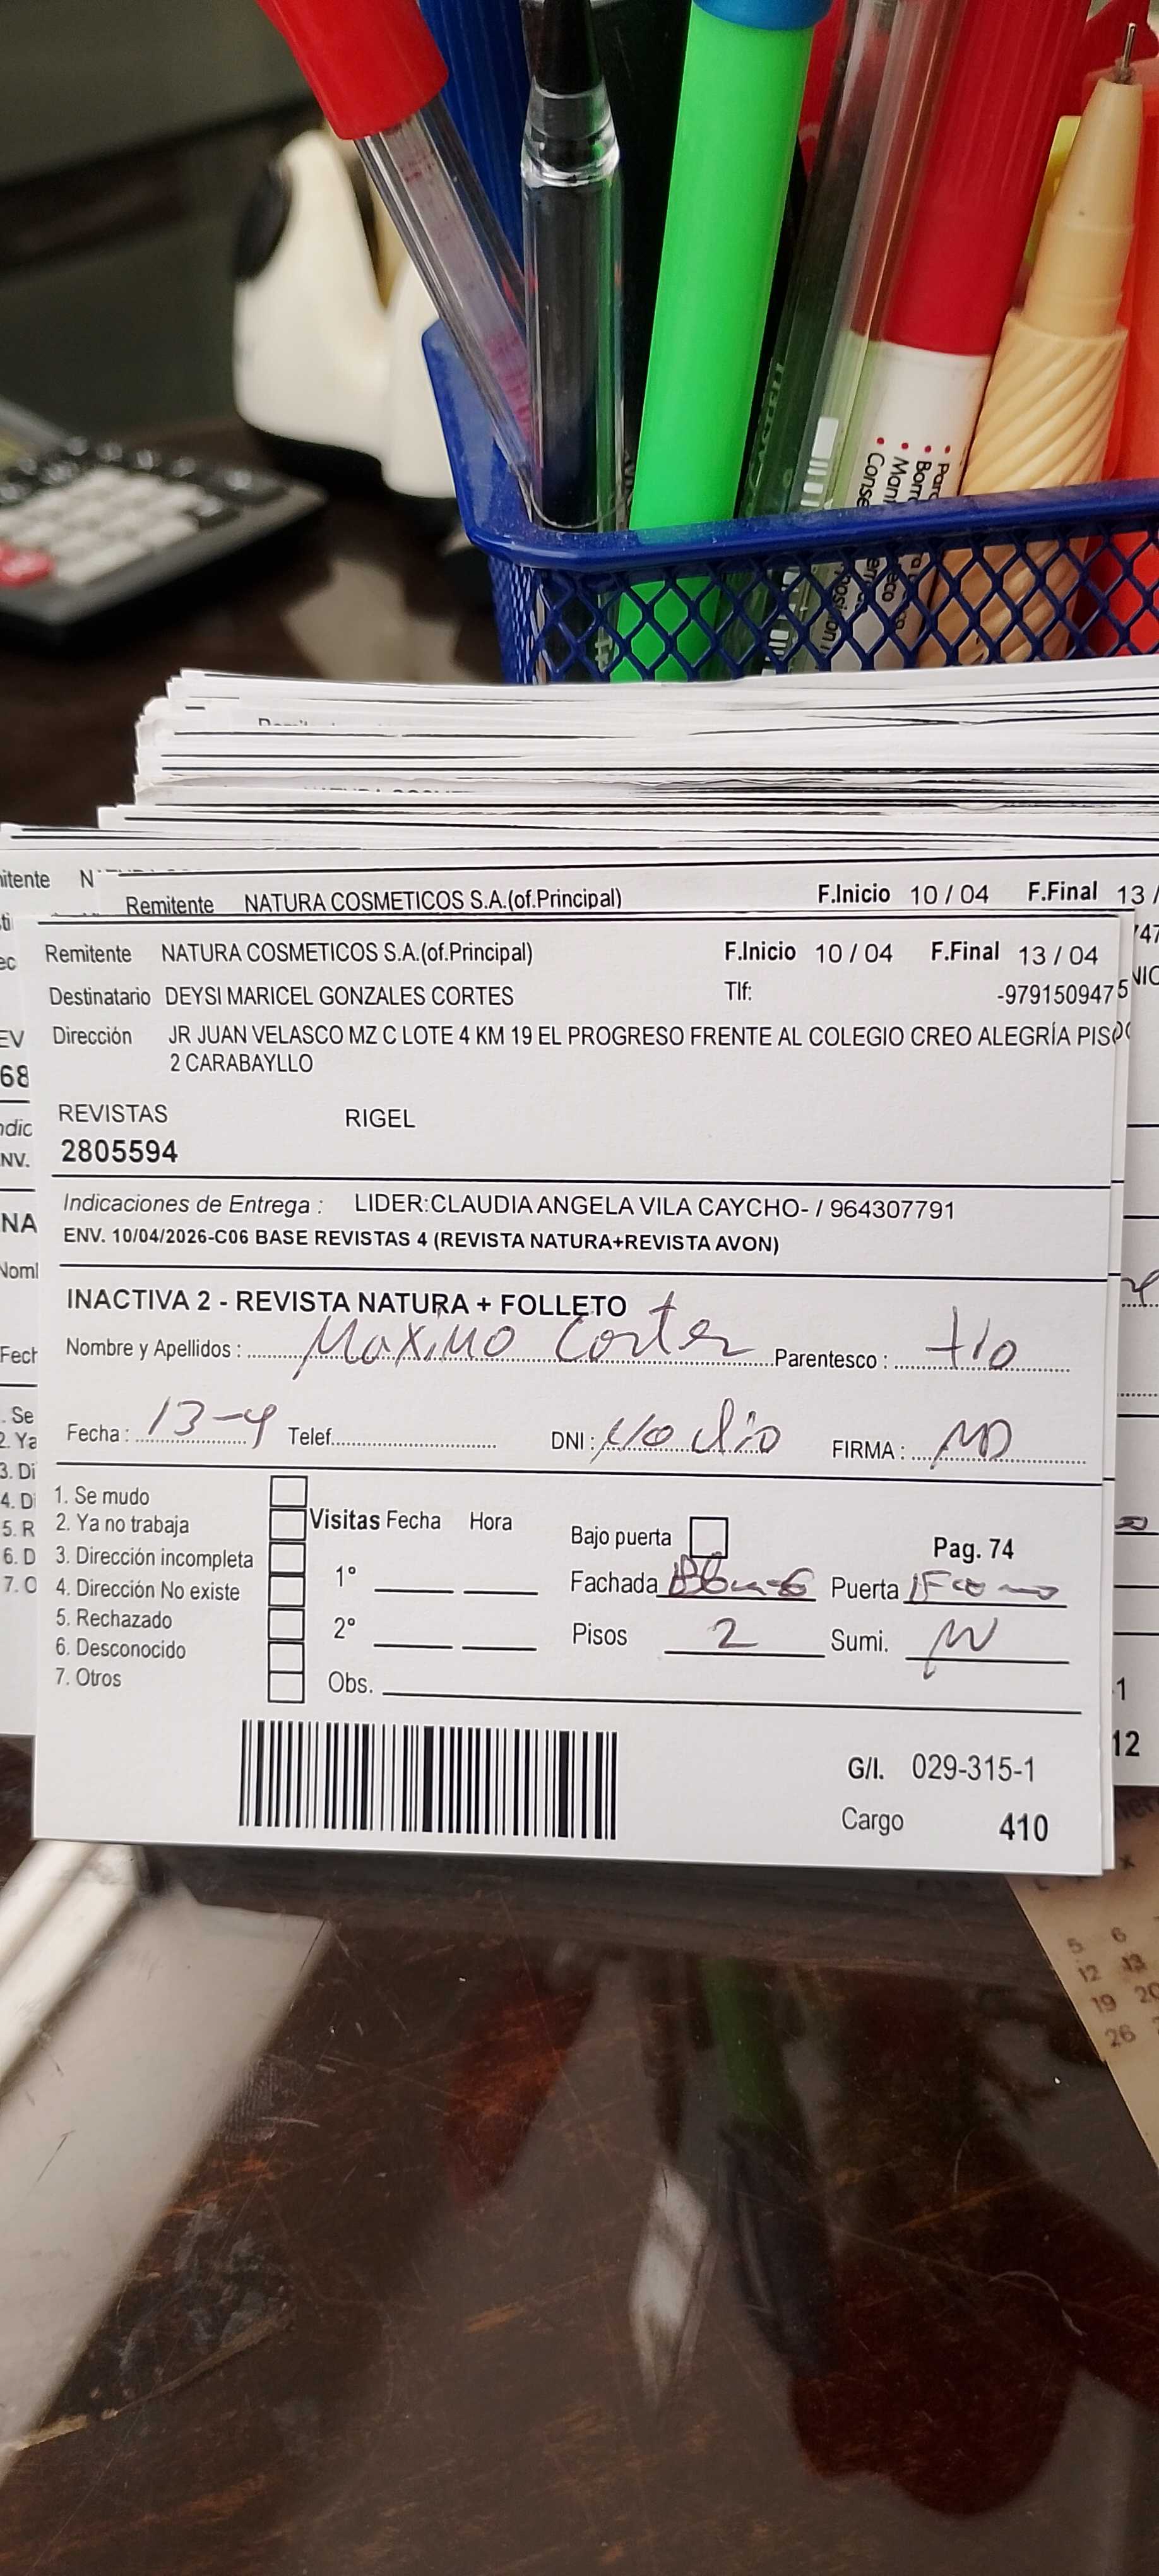 Remitente NATURA COSMETICOS S.A.(of.Principal) F.Inicio 10 / 04 F.Final 13 /
Remitente NATURA COSMETICOS S.A.(of.Principal) F.Inicio 10 / 04 F.Final 13 / 04
Destinatario DEYSI MARICEL GONZALES CORTES Tlf: -979150947
Dirección JR JUAN VELASCO MZ C LOTE 4 KM 19 EL PROGRESO FRENTE AL COLEGIO CREO ALEGRÍA PISO
2 CARABAYLLO
REVISTAS RIGEL
2805594
Indicaciones de Entrega : LIDER:CLAUDIA ANGELA VILA CAYCHO- / 964307791
ENV. 10/04/2026-C06 BASE REVISTAS 4 (REVISTA NATURA+REVISTA AVON)
INACTIVA 2 - REVISTA NATURA + FOLLETO
Nombre y Apellidos : Maximo Cortez Parentesco : tio
Fecha : 13-4 Telef. DNI : No dio FIRMA :
1. Se mudo
2. Ya no trabaja Visitas Fecha Hora Bajo puerta
3. Dirección incompleta Pag. 74
4. Dirección No existe 1° Fachada Puerta
5. Rechazado 2° Pisos 2 Sumi.
6. Desconocido
7. Otros Obs.
G/I. 029-315-1
Cargo 410
5 6
12 13
19 20
26